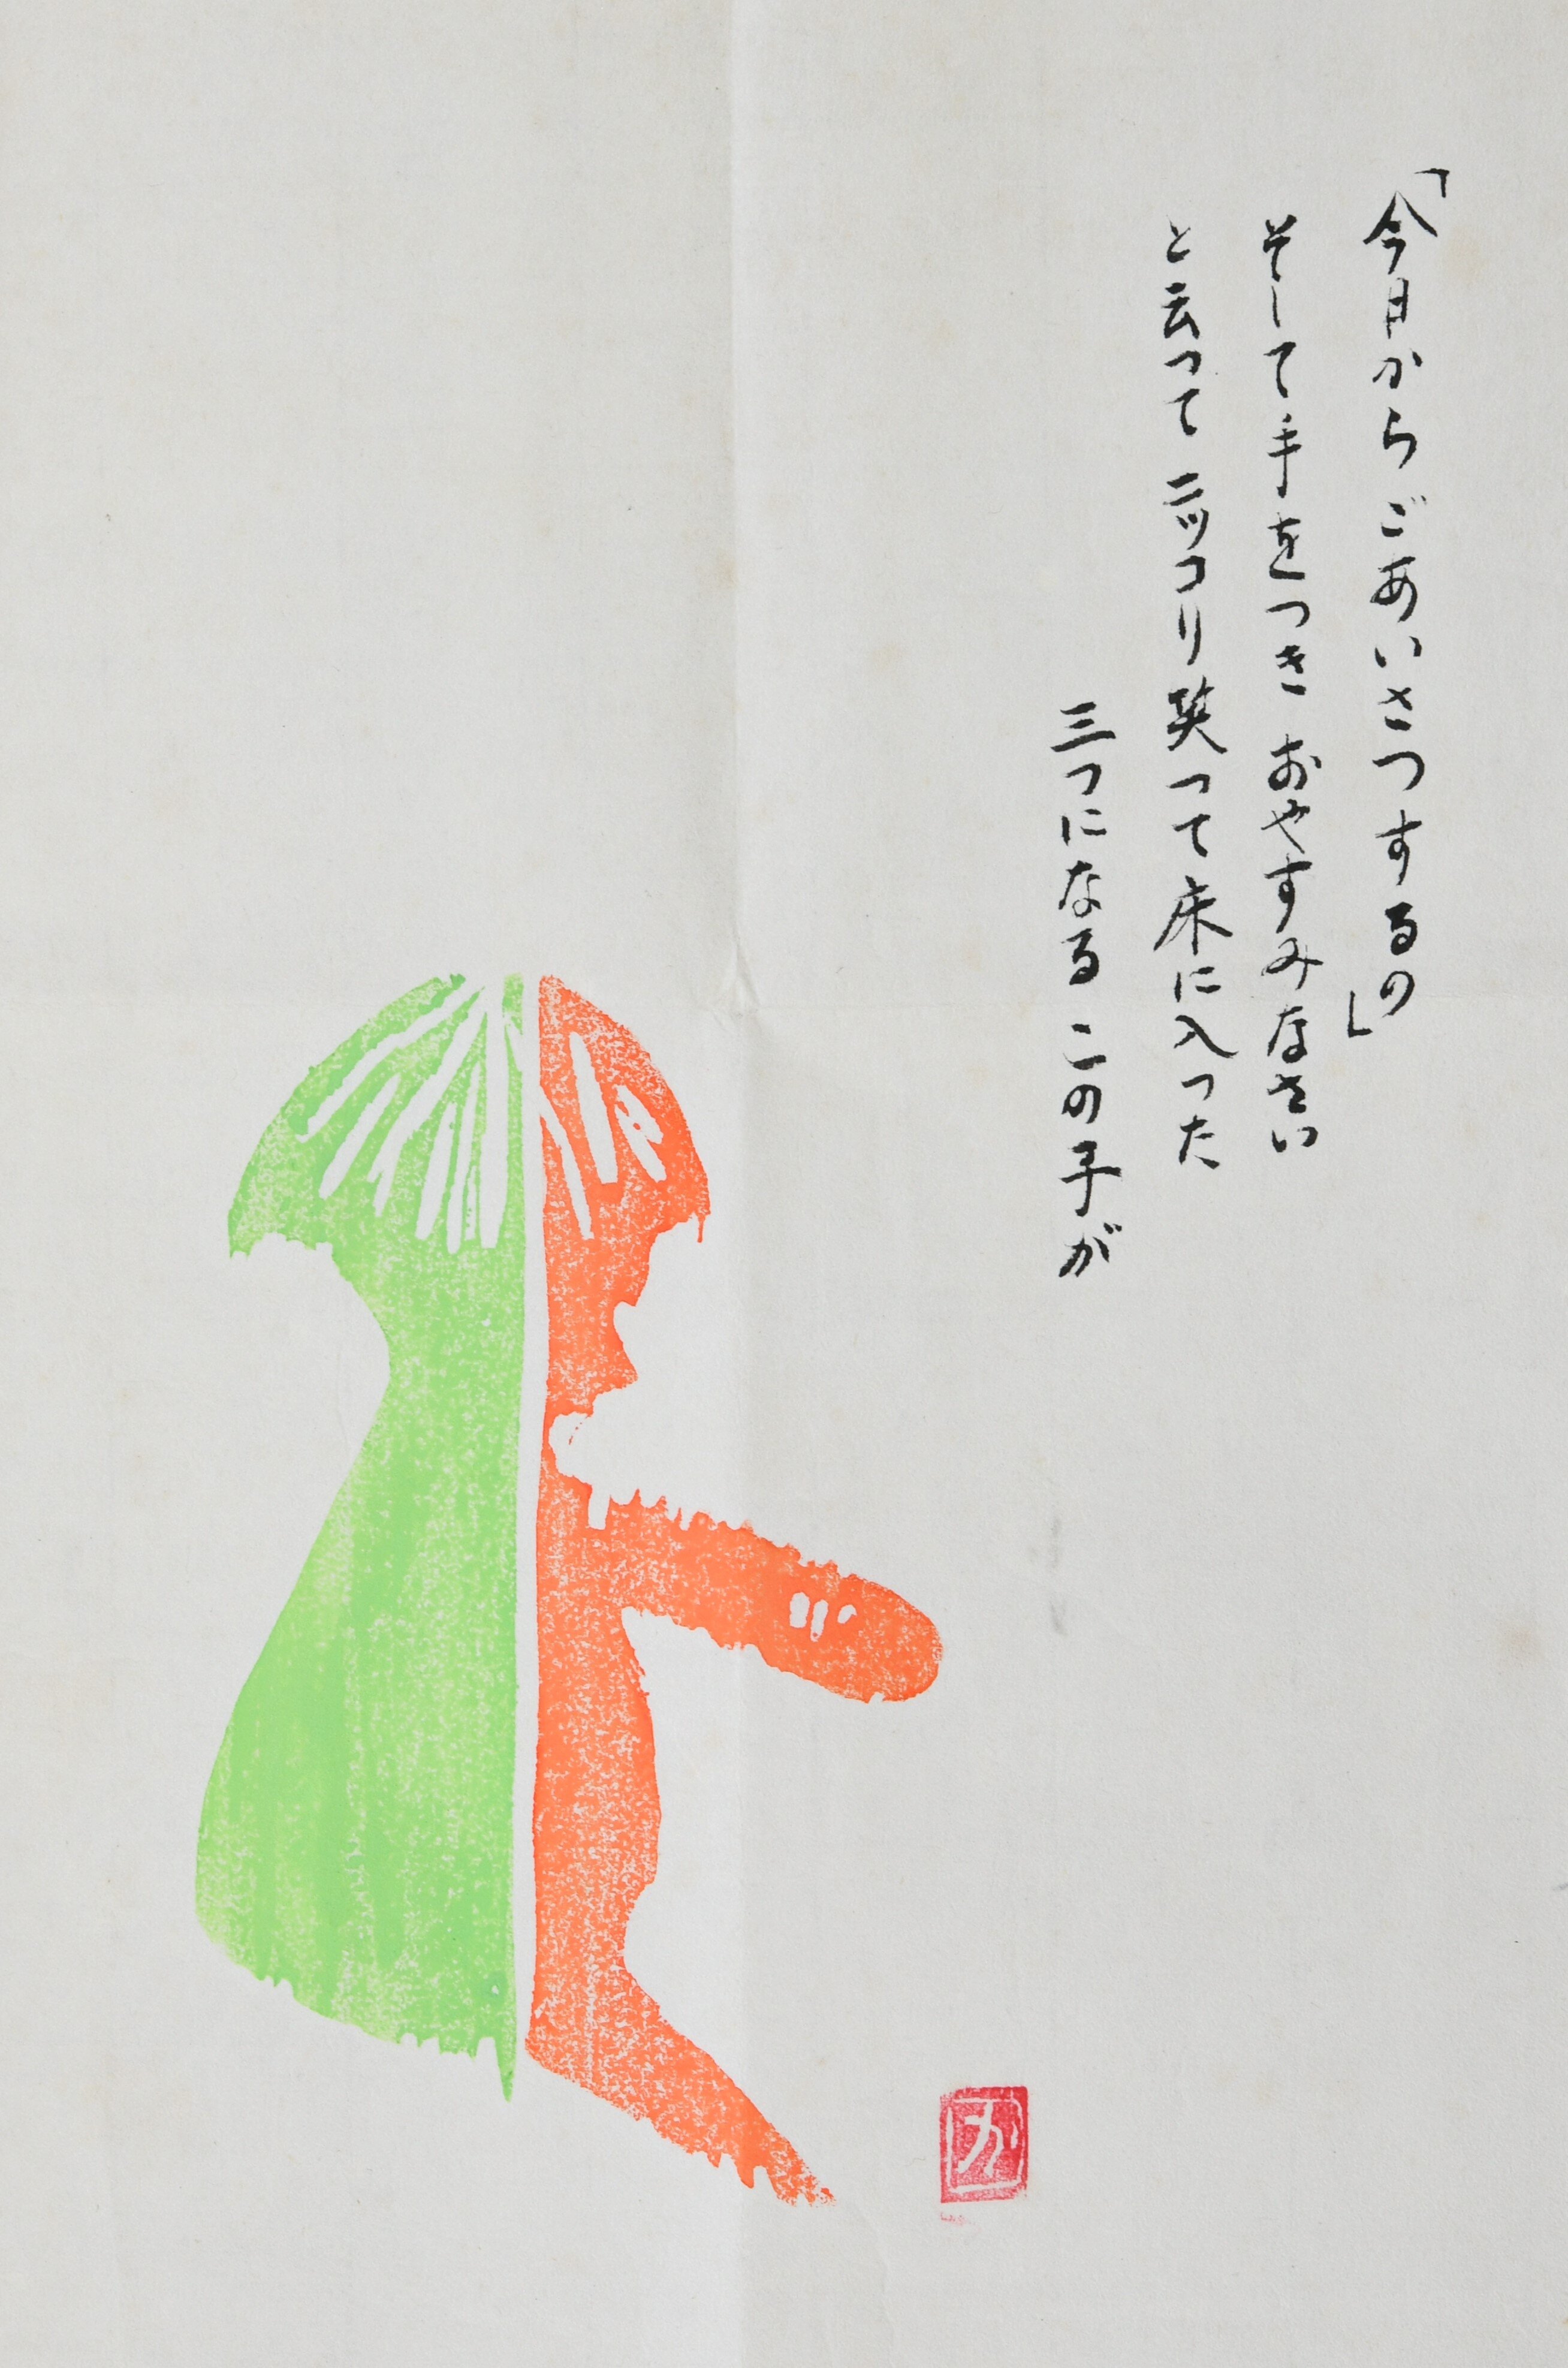 「今日からごあいさつするの」
そして手をつき おやすみなさい
と云つて ニッコリ笑つて床に入つた
三つになる この子が
か